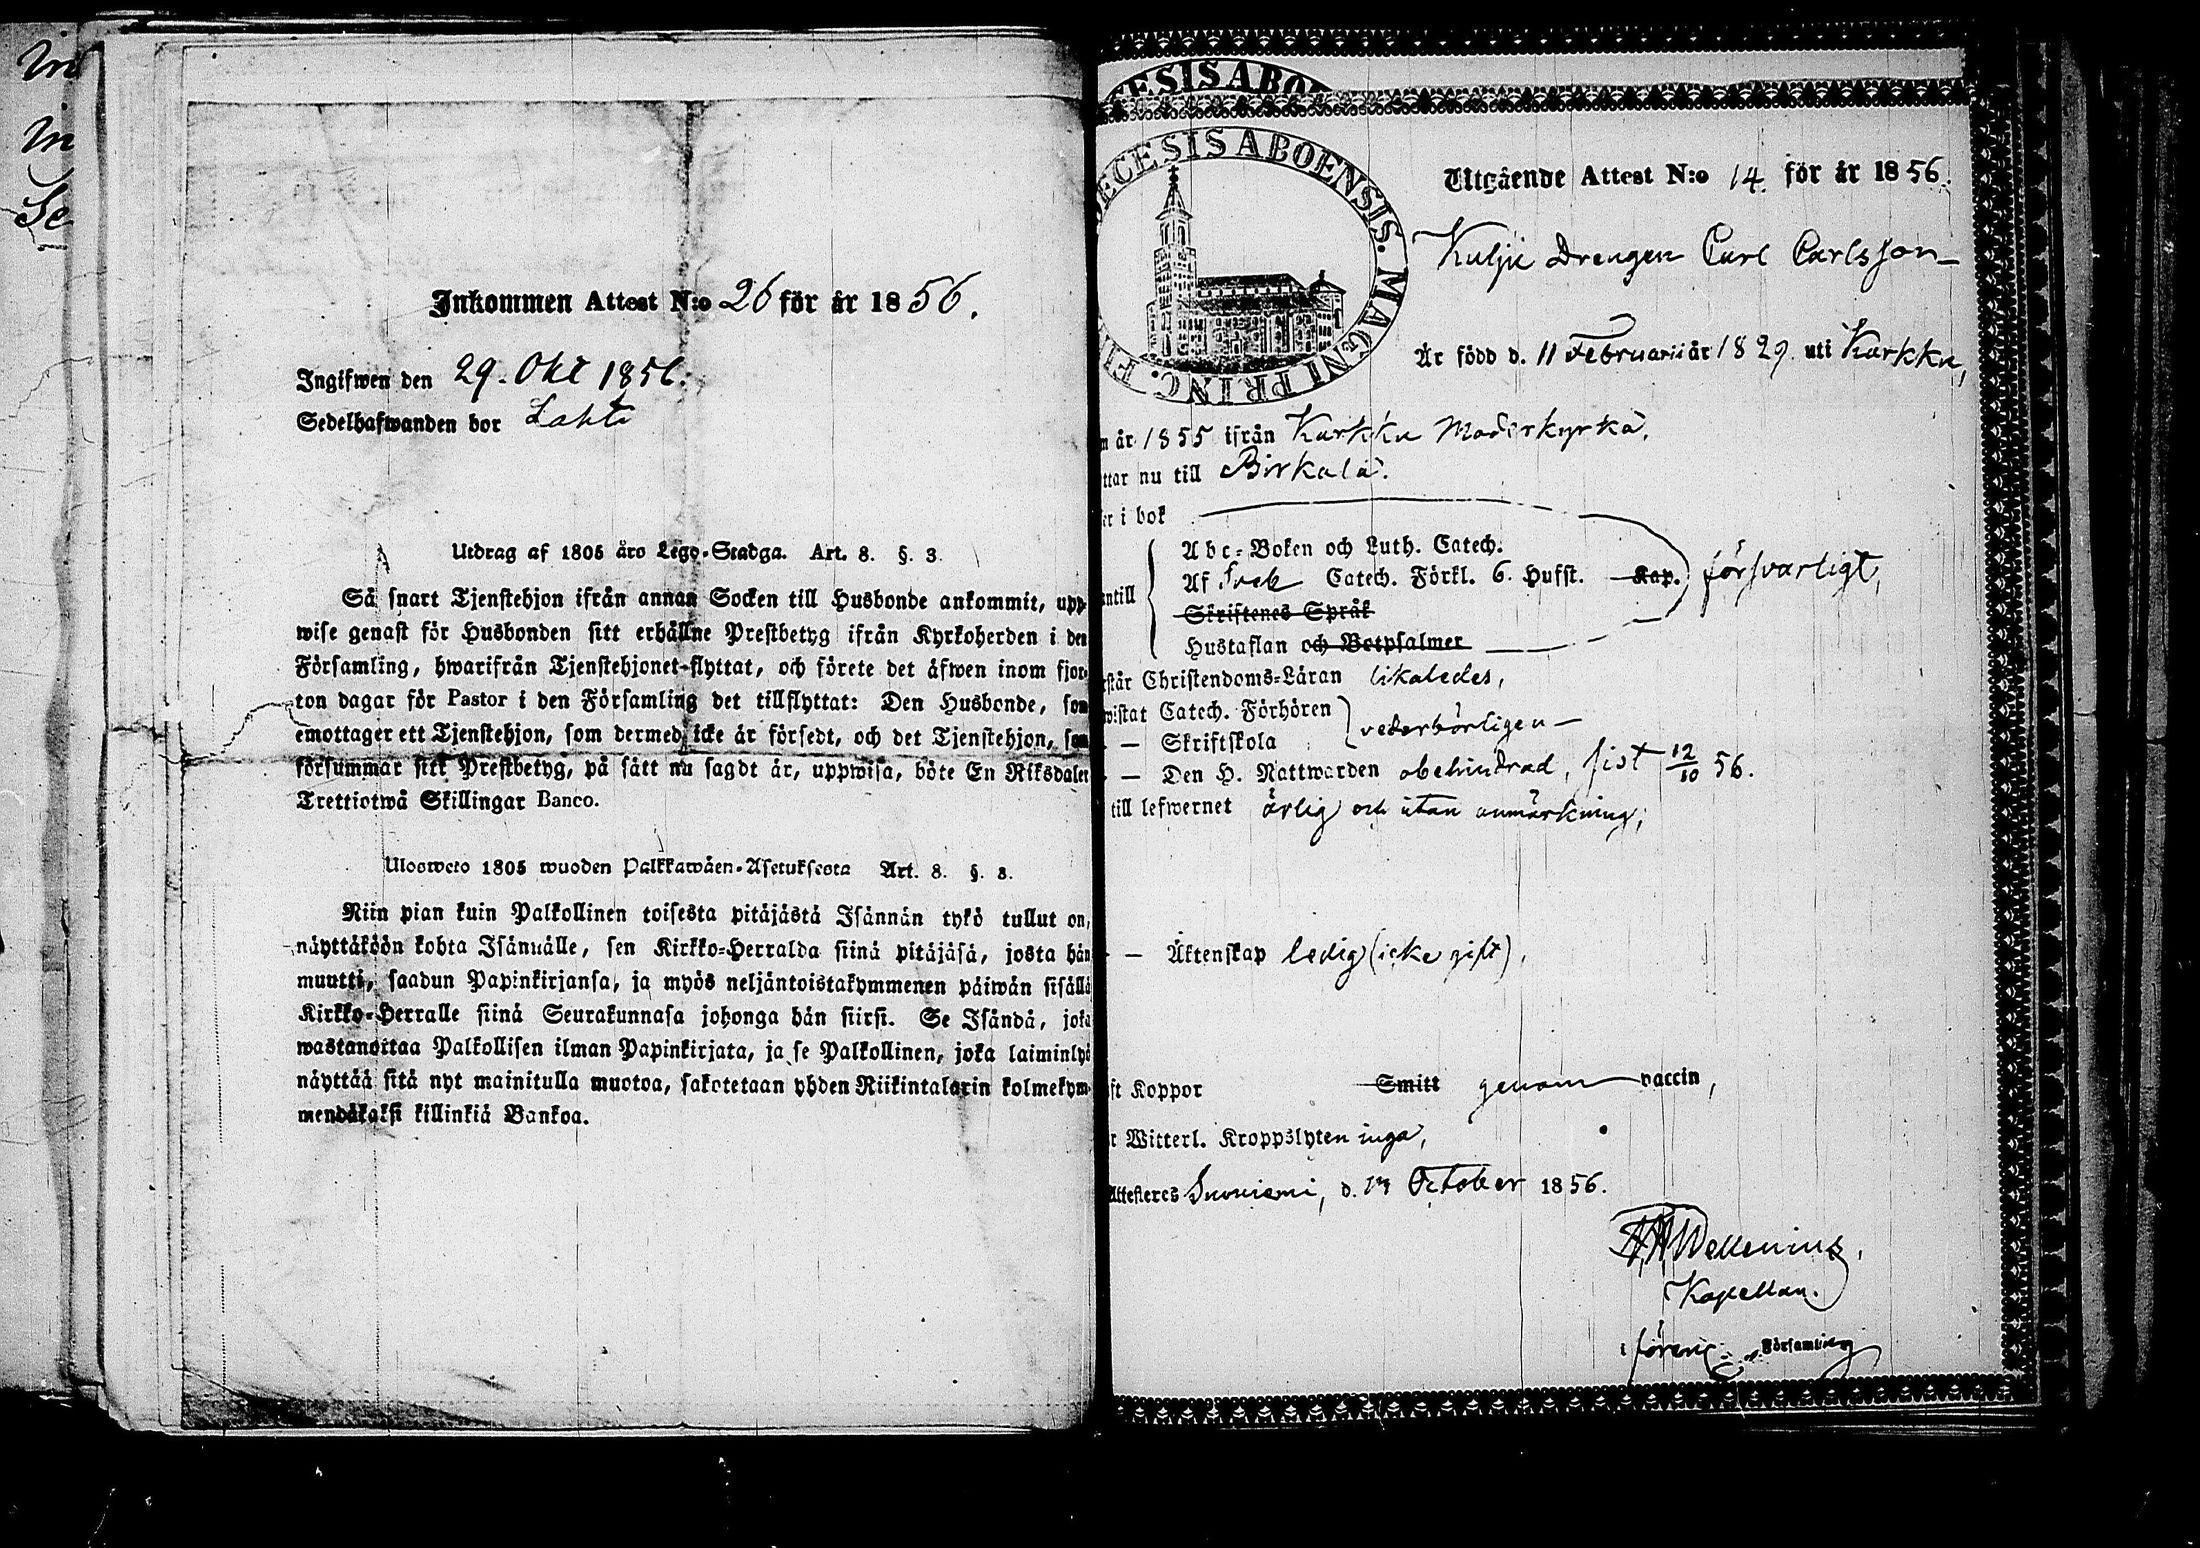 Inkommen Attest N:o 26 för år 1856.
Ingifwen den 29. Okt 1856.
Sedelhafwanden bor Lahti
Utdrag af 1805 års Lego-Stadga. Art. 8. §. 3.
Så snart Tjenstehjon ifrån annan Socken till Husbonde ankommit, upp-
wise genast för Husbonden sitt erhållne Prestbetyg ifrån Kyrkoherden i den
Församling, hwarifrån Tjenstehjonet flyttat, och förete det äfwen inom fjor-
ton dagar för Pastor i den Församling det tillflyttat: Den Husbonde, som
emottager ett Tjenstehjon, som dermed icke är försedt, och det Tjenstehjon, som
försummar sitt Prestbetyg, på sätt nu sagdt är, uppwisa, böte En Riksdaler
Trettiotwå Skillingar Banco.
Ulosweto 1805 wuoden Palkkawäen-Asetuksesta Art. 8. §. 3.
Niin pian kuin Palkollinen toisesta pitäjästä Isännän tykö tullut on,
näyttäköön kohta Isännälle, sen Kirkko-Herralda siinä pitäjäsä, josta hän
muutti, saadun Papinkirjansa, ja myös neljäntoistakymmenen päiwän sisällä
Kirkko-Herralle siinä Seurakunnasa johonga hän siirsi. Se Isändä, joka
wastanottaa Palkollisen ilman Papinkirjata, ja se Palkollinen, joka laiminlyö
näyttää sitä nyt mainitulla muotoa, sakotetaan yhden Riikintalarin kolmekym-
mendäkaksi killinkiä Bankoa.
ECESIS ABOENSIS. MAGNI PRINC. FI
Utgående Attest N:o 14. för år 1856.
Kulju Drengen Carl Carlsson
Är född d. 11 Februarii år 1829. uti Karkku,
n år 1855 ifrån Karkku Moderkyrka,
ttar nu till Birkala.
er i bok
Abc-Boken och Luth. Catech.
Af Sveb Catech. Förkl. 6. Hufst. Kap. försvarligt,
ntill
Skriftenes Språk
Hustaflan och Botpsalmer
står Christendoms-Läran likaledes,
wistat Catech. Förhören
— Skriftskola vederbörligen
— Den H. Nattwarden obehindrad, sist 12/10 56.
till lefwernet ärlig och utan anmärkning;
— Äktenskap ledig (icke gift),
ft Koppor Smitt genom vaccin,
r Witterl. Kroppslyten inga,
Attesteres Suoniemi, d. October 1856.
Kapellan.
i Församling